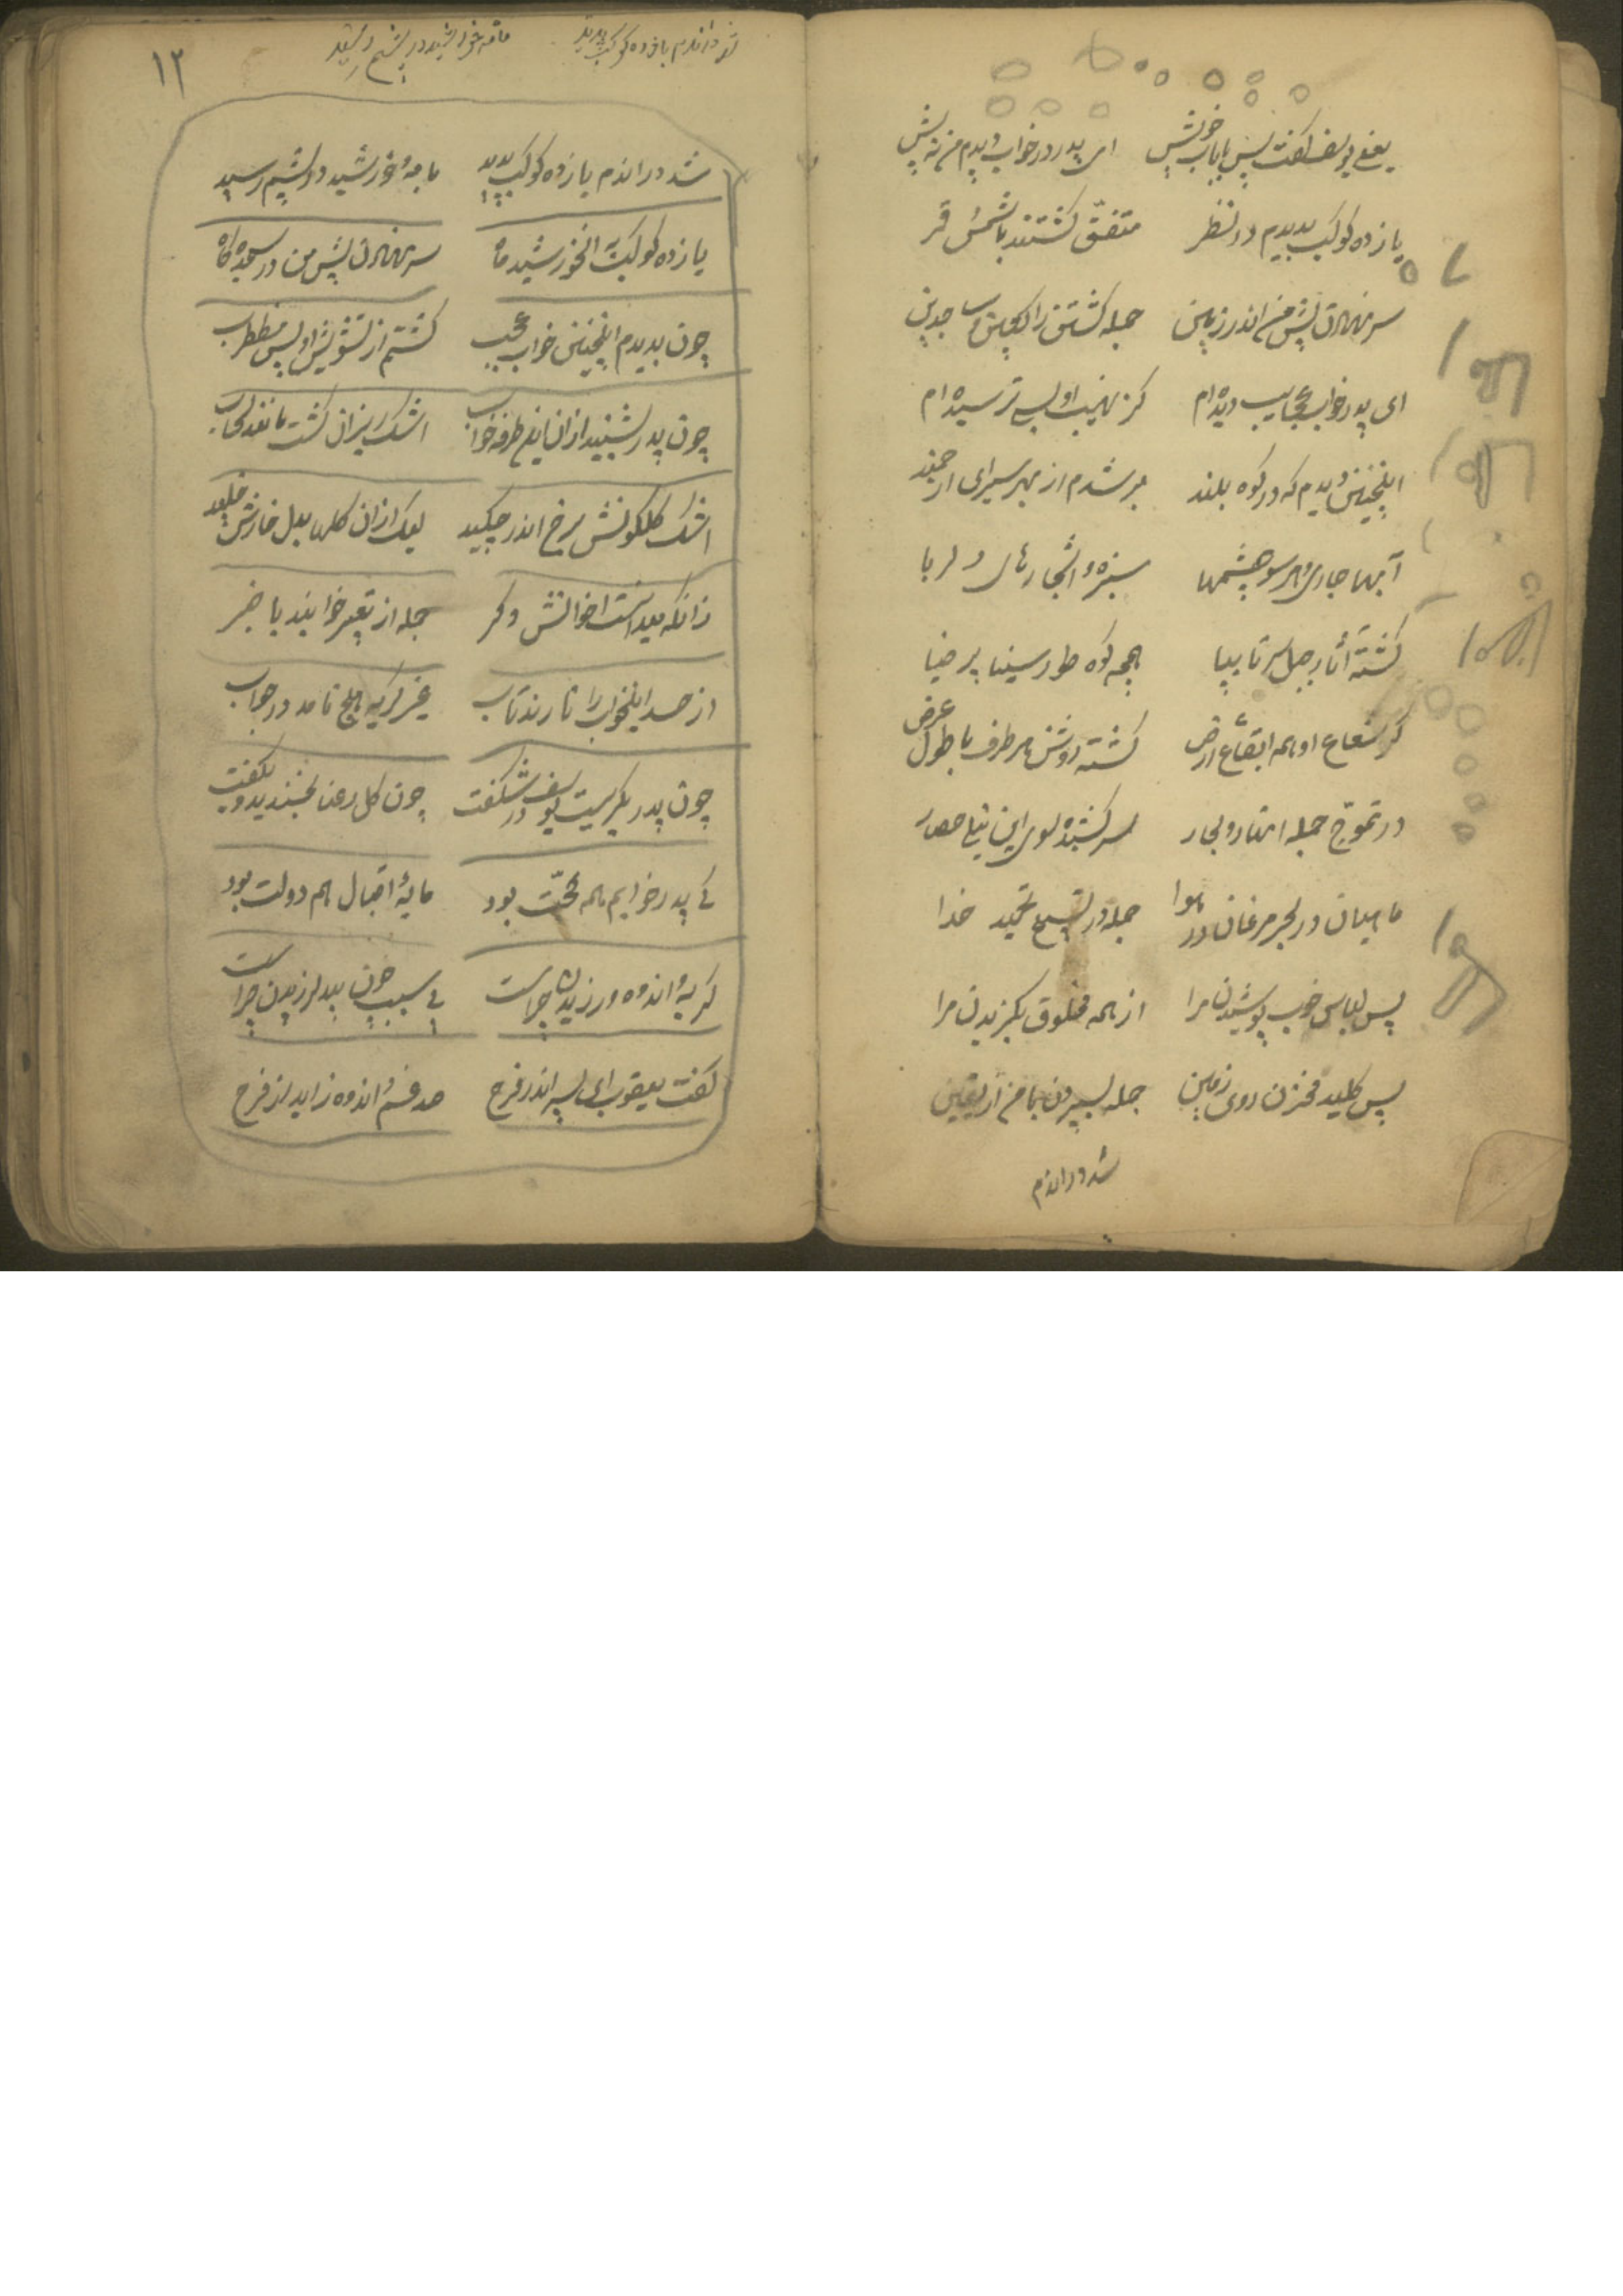 یعنی یوسف گفت پس با باب خویش ای پدر در خواب دیدم من ز پیش
یازده کوکب بدیدم در نظر متفق گشتند با شمس قمر
سر نهادن پیش من اندر زمین جمله گشتن راکعین ساجدین
ای پدر خواب عجایب دیده ام کز نهیب او بسی ترسیده ام
اینچنین دیدم که در کوه بلند بر شدم از بهر سیر ای ارجمند
آبها جاری و هر سو چشمها سبزه و اشجارهای دلربا
گشته آثار جبل سر تا بپا همچه کوه طور سینا پر ضیا
کز شعاع او همه ابقاع ارض گشته روشن هر طرف با طول عرض
در تموّج جمله انهار و بحار سر کشیده سوی این نیلی حصار
ماهیان در بحر مرغان در هوا جمله در تسبیح تمجید خدا
پس لباس خوب پوشیدن مرا از همه مخلوق بگزیدن مرا
پس کلید مخزن روی زمین جمله بسپردن بما من از یقین
شد در اندم
۱۲
شد در اندم یازده کوکب پدید ماه خورشید در
شد در اندم یازده کوکب پدید با مه و خورشید در پیشم رسید
یازده کوکب خورشید ماه سر نهادن پیش من در سجده گاه
چون بدیدم اینچنین خواب عجب گشتم از تشویش او بس مضطرب
چون پدر بشنید از آن این طرفه خواب اشک ریزان گشت مانند سحاب
اشک گلگونش برخ اندر چکید لیک از آن گلها بدل خارش خلید
زانکه میدانست اخوانش دگر جمله از تعبیر خوابند با خبر
از حسد اینخواب را نارند تاب غیر گریه هیچ نامد در جواب
چون پدر بگریست یوسف در شکفت چون گل رعنا بخندید و بگفت
کی پدر خوابم همه محنت بود مایهٔ اقبال هم دولت بود
گریه و اندوه ورزیدن چراست بی سبب چون بید لرزیدن چراست
گفت یعقوب ای پسر اندر فرح صد غم و اندوه زاید از فرح